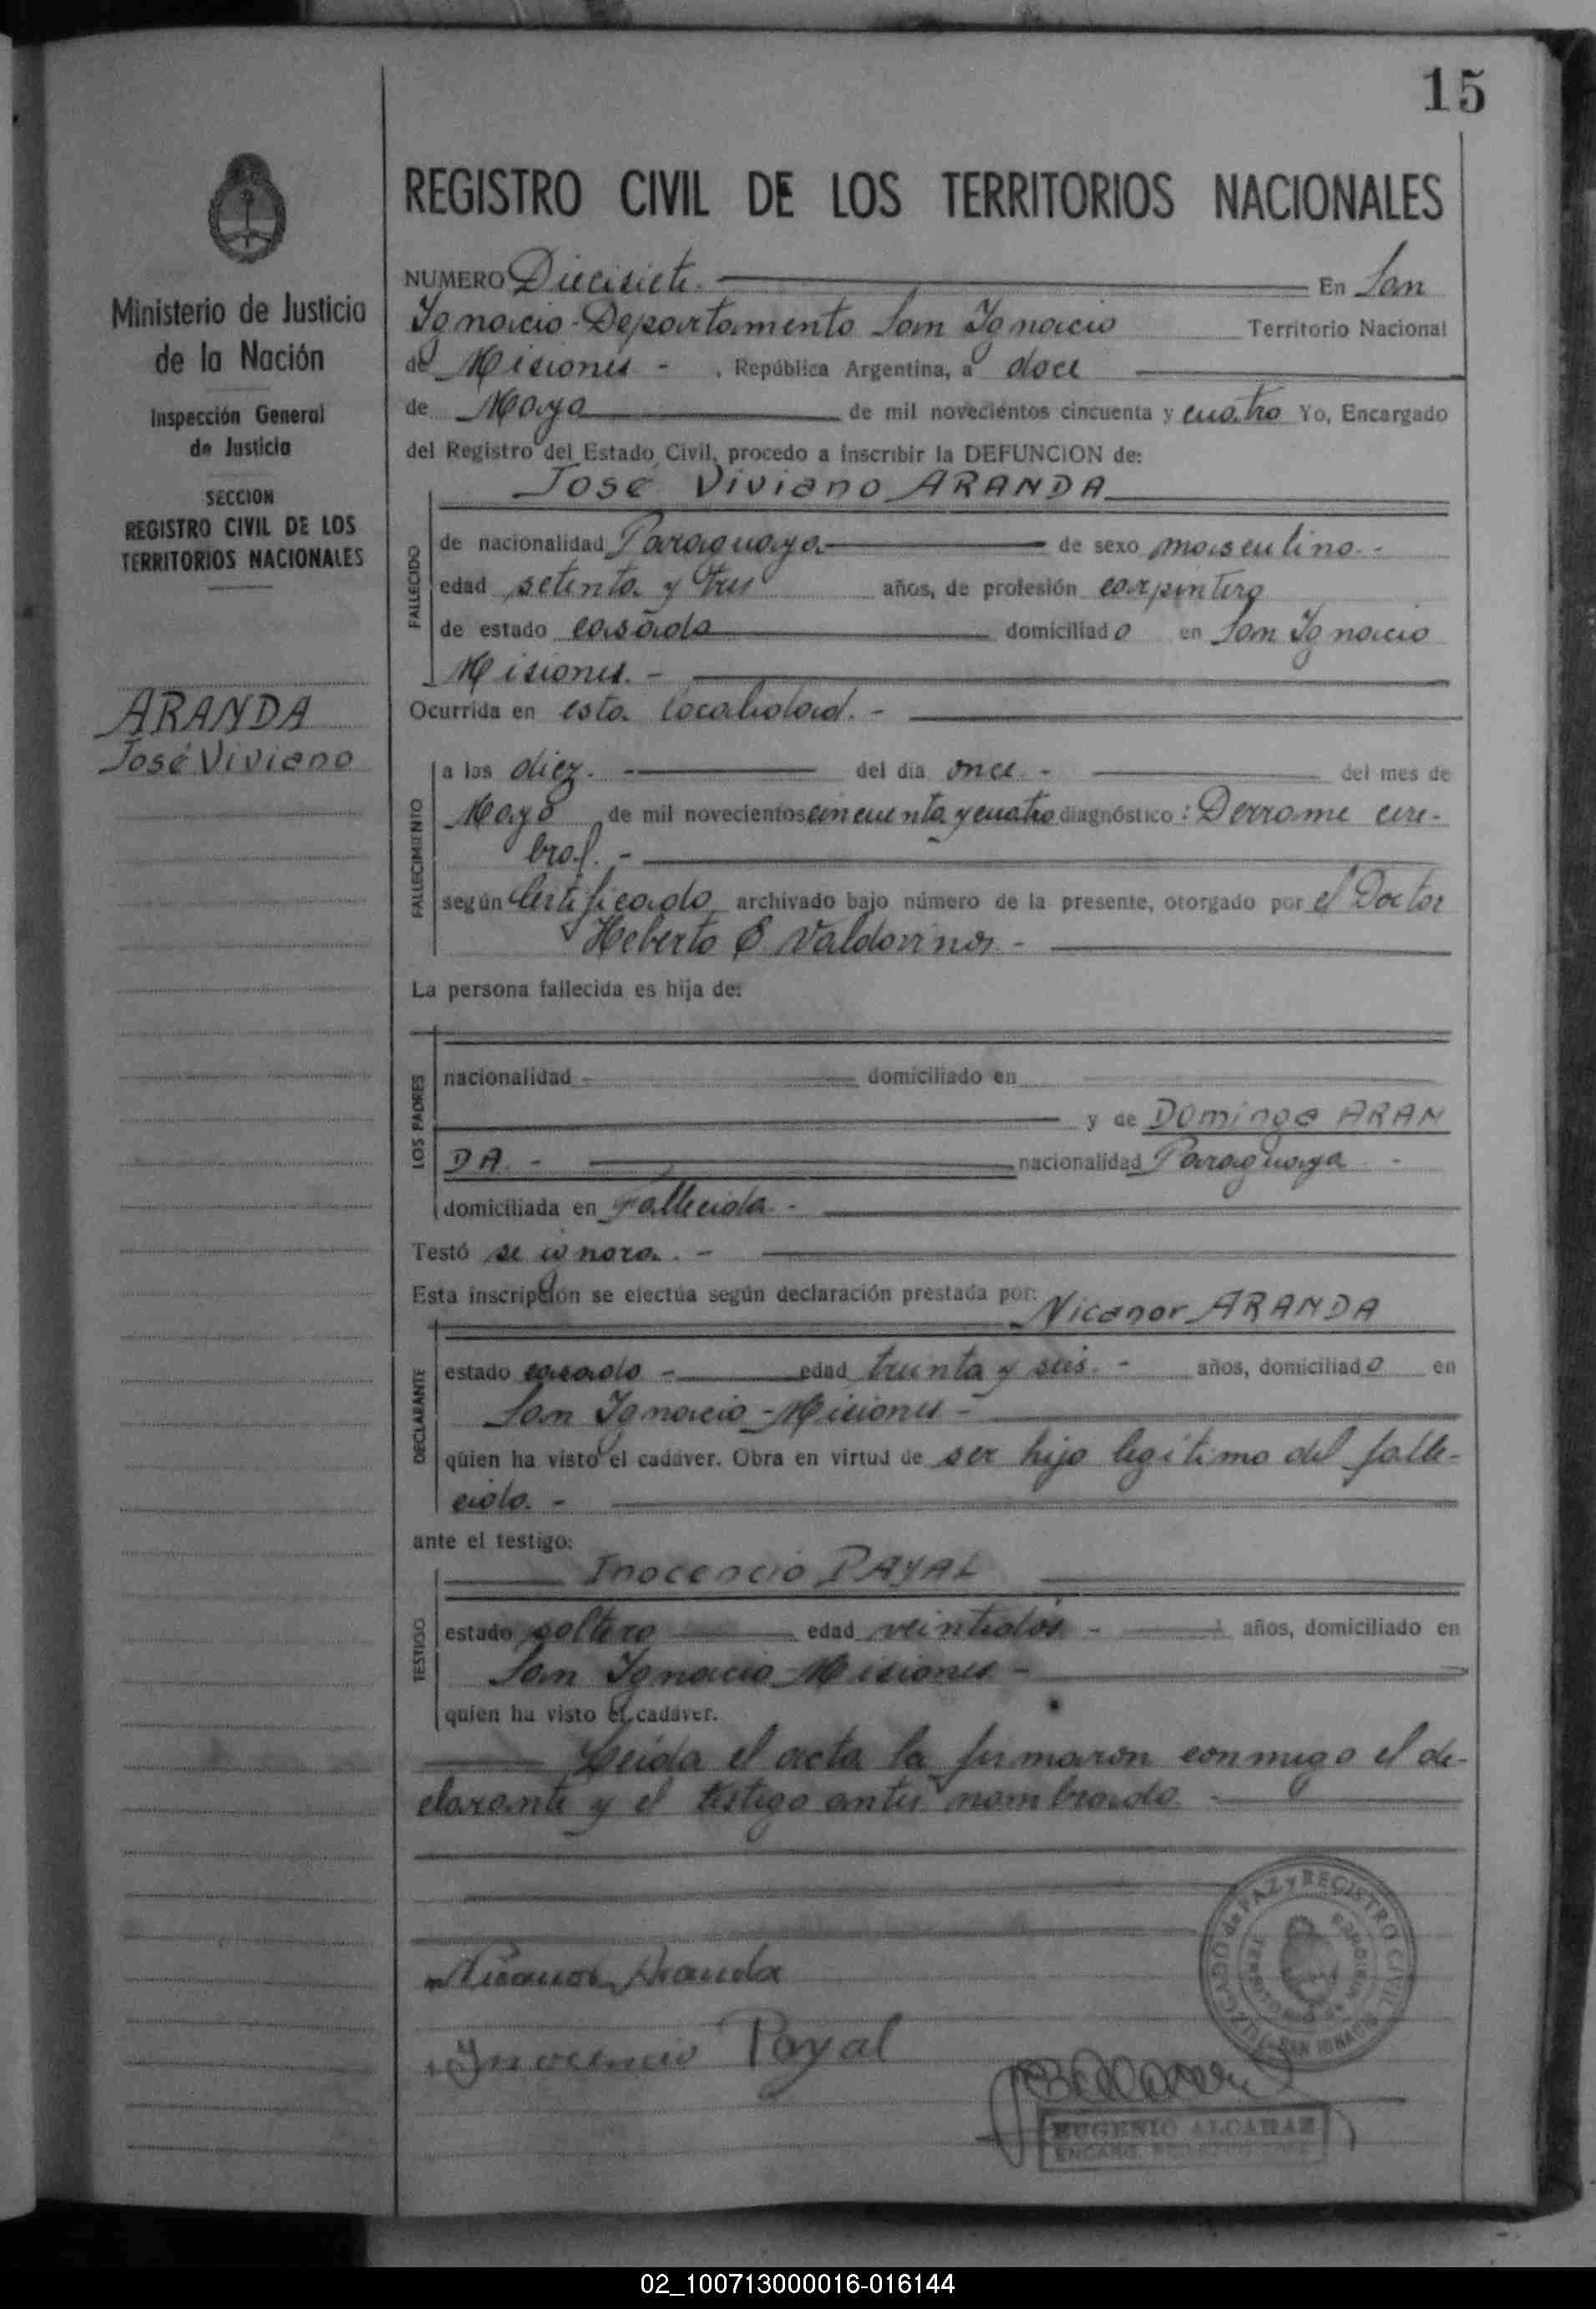 15
Ministerio de Justicia
de la Nación
Inspección General
de Justicia
SECCION
REGISTRO CIVIL DE LOS
TERRITORIOS NACIONALES
ARANDA
José Viviano
REGISTRO CIVIL DE LOS TERRITORIOS NACIONALES
NUMERO Diecisiete. En San
Ignacio - Departamento San Ignacio Territorio Nacional
de Misiones - , República Argentina, a doce
de Mayo de mil novecientos cincuenta y cuatro Yo, Encargado
del Registro del Estado Civil, procedo a inscribir la DEFUNCION de:
José Viviano ARANDA
FALLECIDO
de nacionalidad Paraguaya de sexo masculino. -
edad setenta y tres años, de profesión carpintero
de estado casado domiciliado en San Ignacio
Misiones. -
Ocurrida en esta localidad. -
FALLECIMIENTO
a las diez. - del día once. - del mes de
Mayo de mil novecientos cincuenta y cuatro diagnóstico: Derrame cere-
bral. -
según Certificado archivado bajo número de la presente, otorgado por el Doctor
Heberto Valdovinos -
La persona fallecida es hija de:
LOS PADRES
nacionalidad - domiciliado en
y de Dominga ARAN
DA. - nacionalidad Paraguaya -
domiciliada en Fallecida. -
Testó se ignora. -
Esta inscripción se efectúa según declaración prestada por:
Nicanor ARANDA
DECLARANTE
estado casado - edad treinta y seis. - años, domiciliado en
San Ignacio - Misiones -
quien ha visto el cadáver. Obra en virtud de ser hijo legítimo del falle-
cido. -
ante el testigo:
Inocencio PAYAL
TESTIGO
estado soltero edad veintidós - años, domiciliado en
San Ignacio - Misiones -
quien ha visto el cadáver.
Leída el acta la firmaron conmigo el de-
clarante y el testigo antes nombrado -
Nicanor Aranda
Inocencio Payal
JUZGADO de PAZ y REGISTRO CIVIL
SAN IGNACIO
EUGENIO ALCARAZ
ENCARG.
02_100713000016-016144